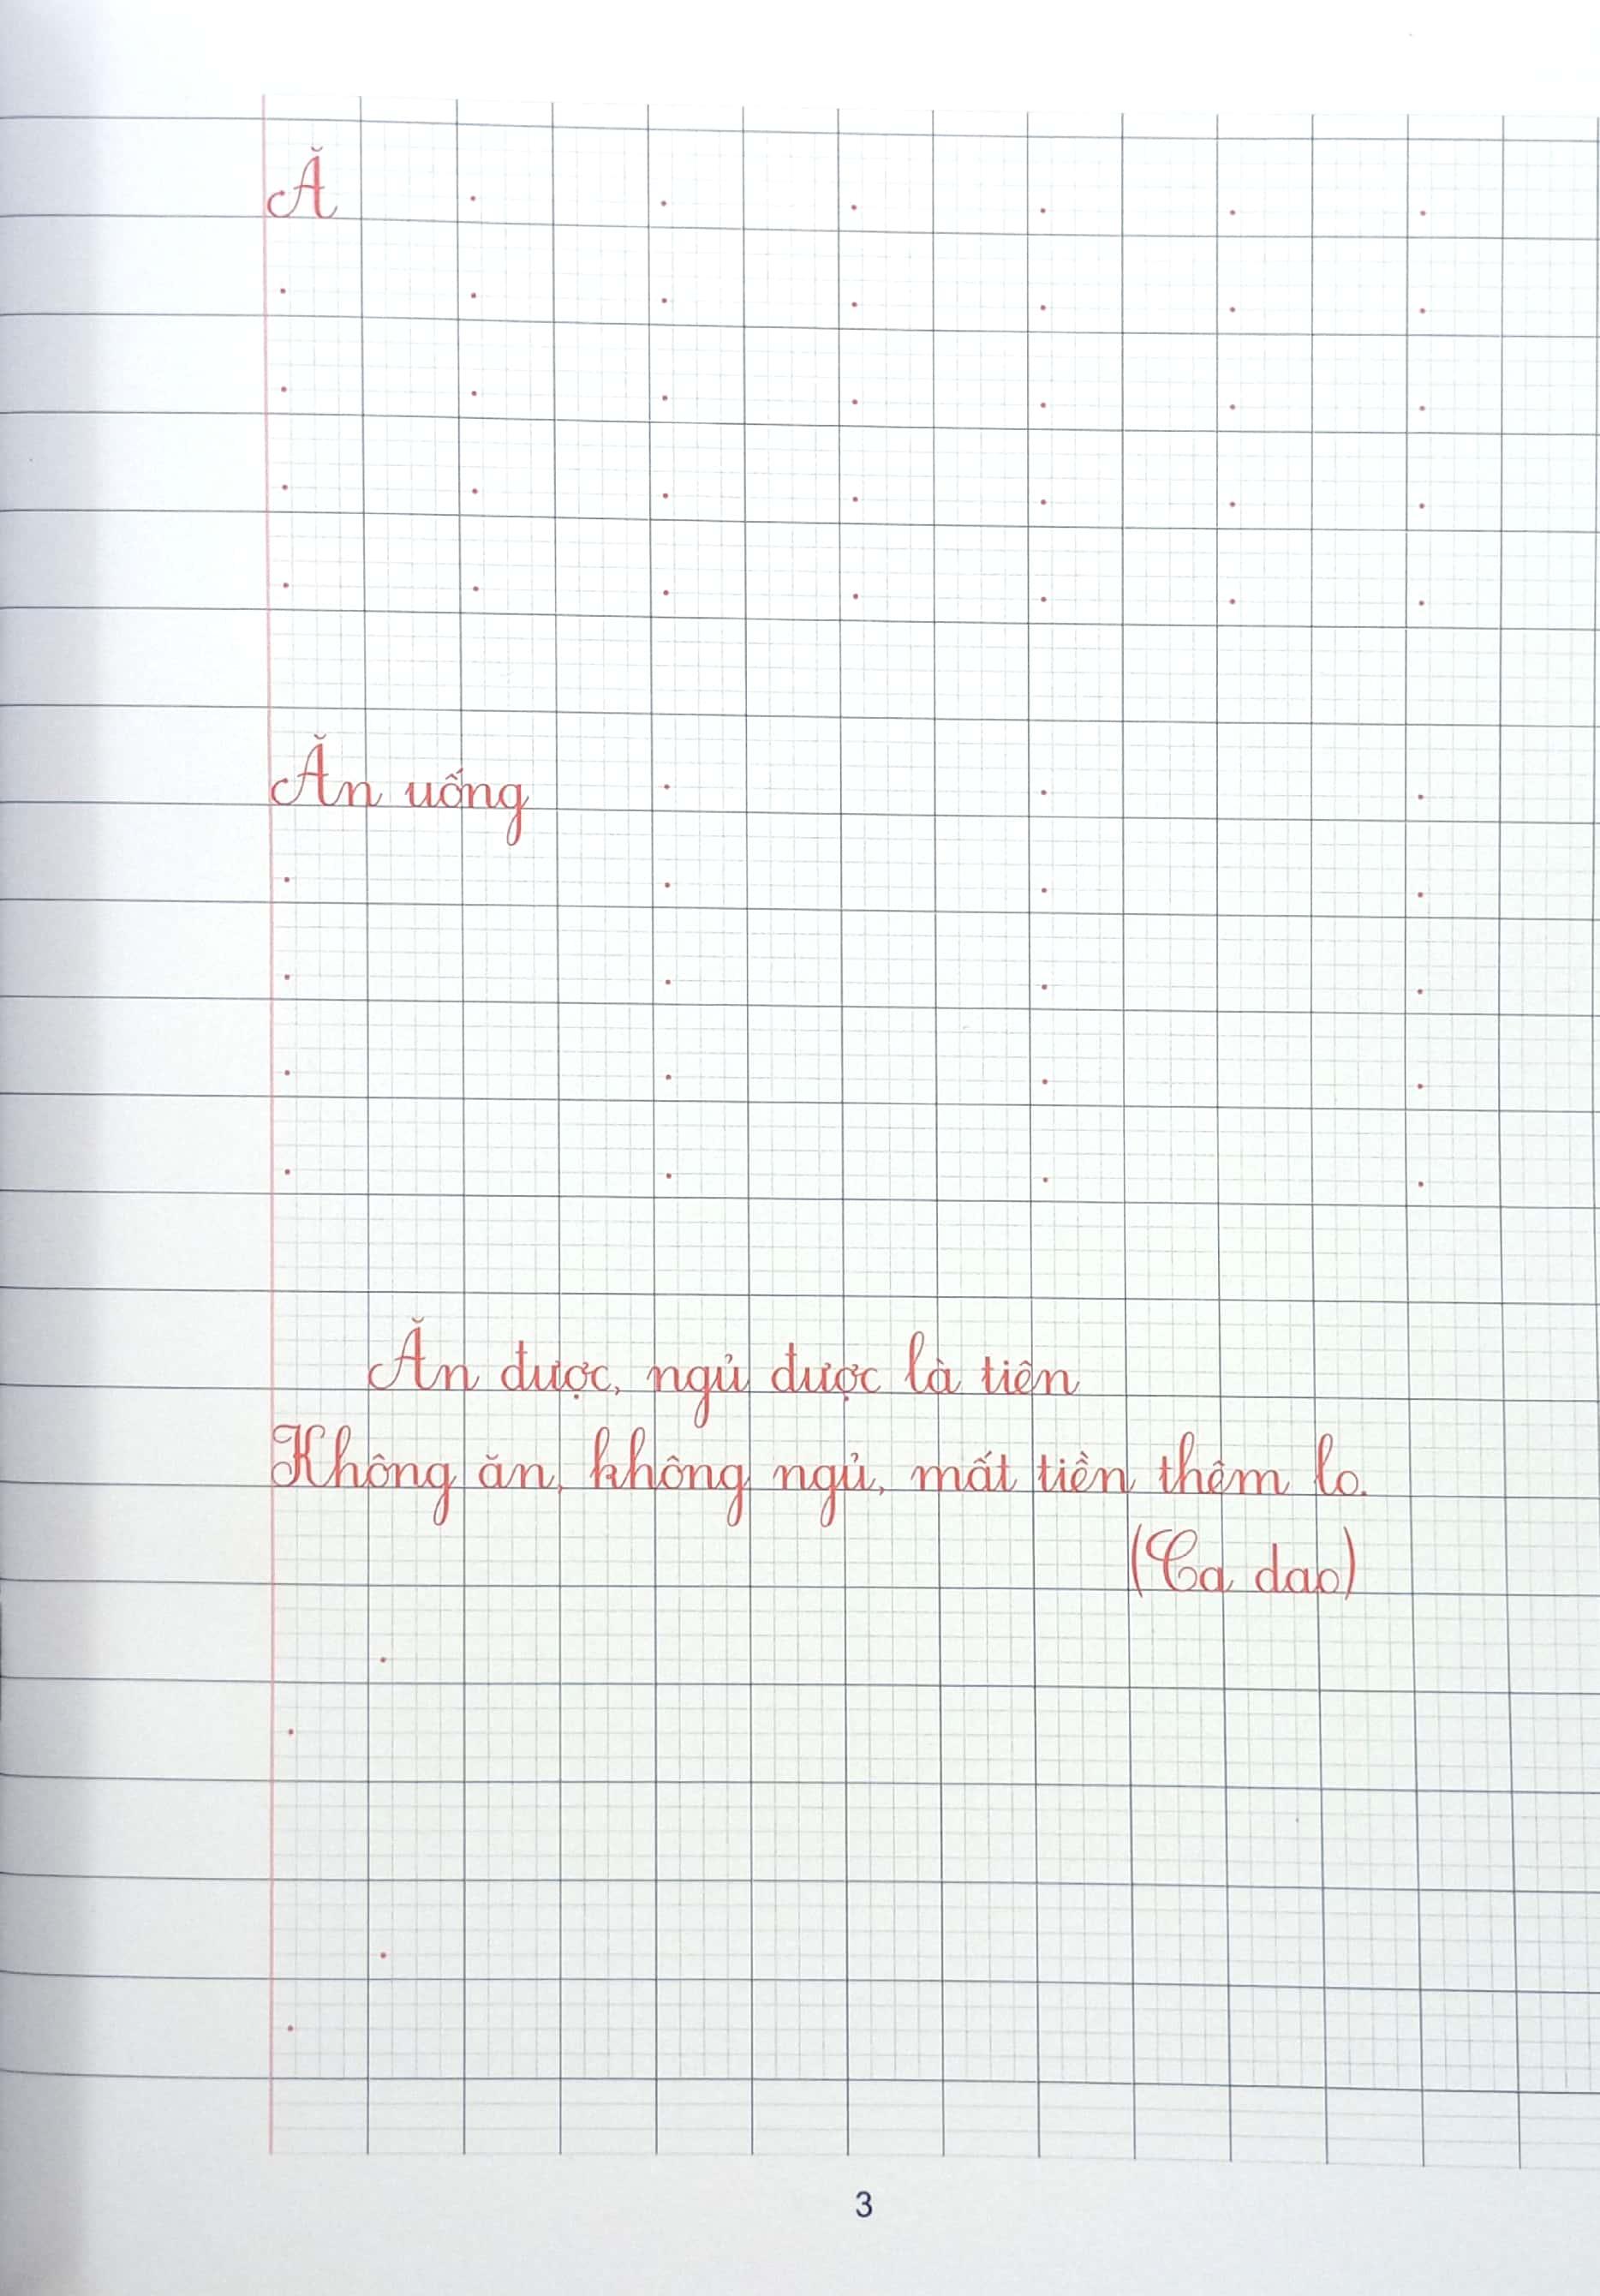 Ă
Ăn uống
Ăn được, ngủ được là tiên
Không ăn, không ngủ, mất tiền thêm lo.
(Ca dao)
3